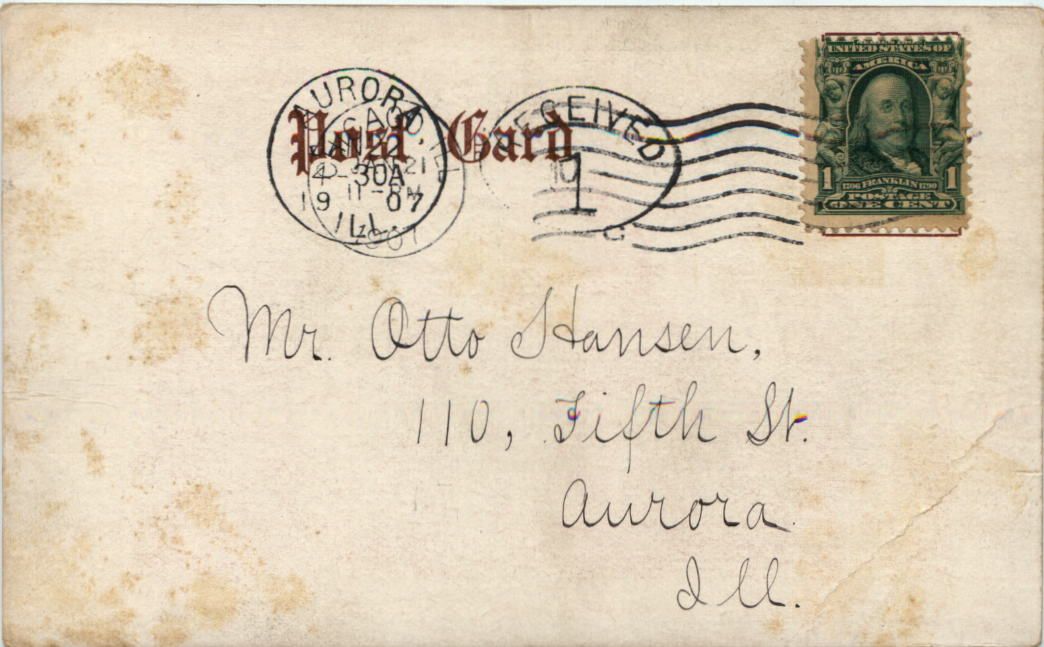 UNITED STATES OF
AMERICA
1 1706 FRANKLIN 1790 1
POSTAGE
ONE CENT
Post Card
AURORA,
JAN 22
4-30A
19 07
ILL.
CHICAGO, ILL.
JAN 21
11-PM
1907
RECEIVED
1
Mr. Otto Hansen,
110, Fifth St.
Aurora
Ill.